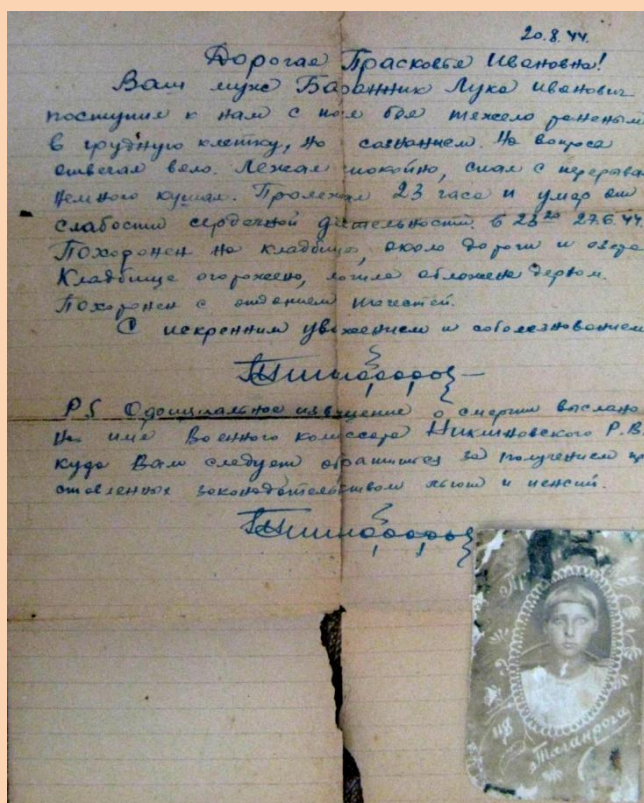 20.8.44.
Дорогая Прасковья Ивановна!
Ваш муж Баранник Лука Иванович
поступил к нам с поля боя тяжело раненым
в грудную клетку, но сознанием. На вопросы
отвечал вяло. Лежал спокойно, спал с перерыва
немного кушал. Пролежал 23 часа и умер от
слабости сердечной деятельности. в 23 20 27.6.44.
Похоронен на кладбище, около дороги и озера
Кладбище огорожено, могила обложена дерном.
Похоронен с отданием почестей.
С искренним уважением и соболезнованием
P.S Официальное извещение о смерти выслано
на имя Военного комиссара Р.В.
куда Вам следует обратится за получением пр
ставленных законодательством льгот и пенсий.
Пр
из
Таганрога